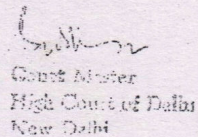 Court Master
High Court of Delhi
New Delhi